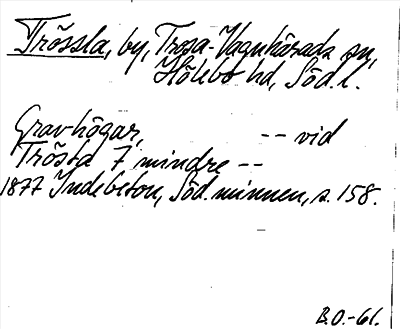 Trössla, by, Trosa-Vagnhärads sn,
Hölebo hd, Söd.l.
Gravhögar, -- vid
Trösta 7 mindre --
1877 Indebetou, Söd. minnen, s. 158.
B.O.-61.